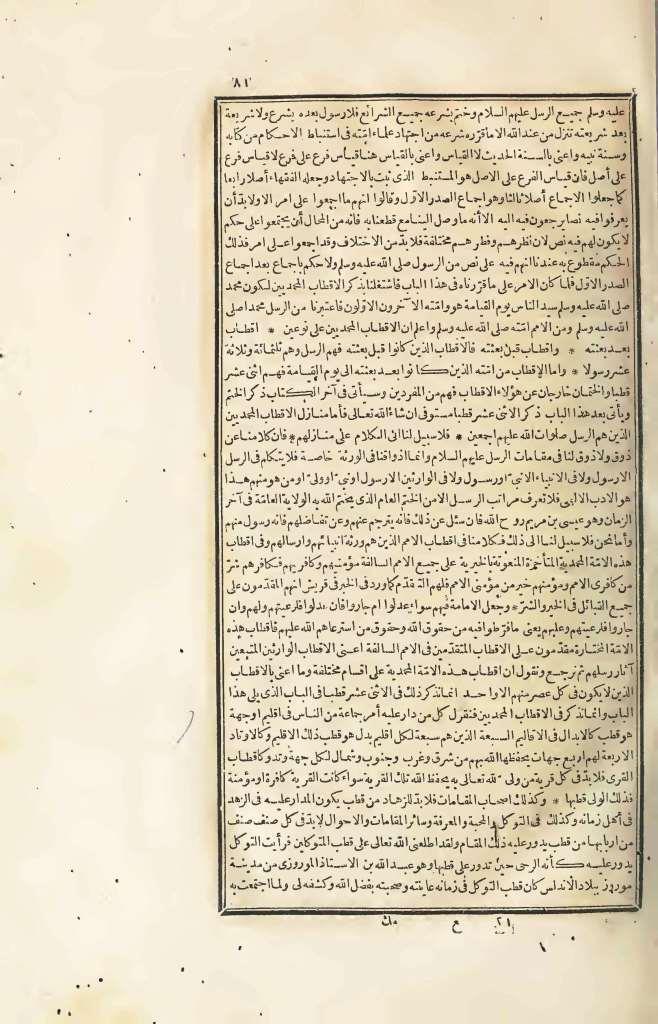 ٨١
عليه وسلم جميع الرسل عليهم السلام وختم بشرعه جميع الشرائع فلا رسول بعده يشرع ولا شريعة
بعد شريعته تنزل من عند الله الا ما قرره شرعه من اجتهاد علماء امته فى استنباط الاحكام من كتابه
وسنة نبيه واعنى بالسنة الحديث لا القياس واعنى بالقياس هنا قياس فرع على فرع لا قياس فرع
على أصل فان قياس الفرع على الاصل هو المستنبط الذى ثبت بالاجتهاد وجعله الفقهاء أصلا رابعا
كما جعلوا الاجماع أصلا ثالثا وهو اجماع الصدر الاول وقالوا انهم ما اجمعوا على امر الا ولابد أن
يعرفوا فيه نصا يرجعون فيه اليه الا أنه ما وصل الينا مع قطعنا به فانه من المحال أن يجتمعوا على حكم
لا يكون لهم فيه نص لان نظرهم وفطرهم مختلفة فلابد من الاختلاف وقد اجمعوا على امر فذلك
الحكم مقطوع به عندنا انهم فيه على نص من الرسول صلى الله عليه وسلم ولا حكم باجماع بعد اجماع
الصدر الاول فلما كان الامر على ما قررناه فى هذا الباب فاشتغلنا بذكر الاقطاب المحمديين لكون محمد
صلى الله عليه وسلم سيد الناس يوم القيامة هو وامته الآخرون الاولون فاعتبرنا من الرسل محمدا صلى
الله عليه وسلم ومن الامم امته صلى الله عليه وسلم واعلم ان الاقطاب المحمديين على نوعين * اقطاب
بعد بعثته * واقطاب قبل بعثته فالاقطاب الذين كانوا قبل بعثته فهم الرسل وهم ثلثمائة وثلاثة
عشر رسولا * واما الاقطاب من امته الذين كانوا بعد بعثته الى يوم القيامة فهم اثنى عشر
قطبا والختمان خارجان عن هؤلاء الاقطاب فهم من المفردين وسيأتى فى آخر الكتاب ذكر الختم
ويأتى بعد هذا الباب ذكر الاثنى عشر قطبا مستوفى ان شاء الله تعالى فأما منازل الاقطاب المحمديين
الذين هم الرسل صلوات الله عليهم اجمعين * فلا سبيل لنا الى الكلام على منازلهم * فان كلامنا عن
ذوق ولا ذوق لنا فى مقامات الرسل عليهم السلام وانما اذواقنا فى الورثة خاصة فلا يتكلم فى الرسل
الا رسول ولا فى الانبياء الا نبىّ او رسول ولا فى الوارثين الا رسول او نبىّ او ولىّ او من هو منهم هذا
هو الادب الالهى فلا تعرف مراتب الرسل الا من الختم العام الذى يختم الله به الولاية العامّة فى آخر
الزمان وهو عيسى بن مريم روح الله فان سئل عن ذلك فانه يترجم عنهم وعن تفاضلهم فانه رسول منهم
وأما نحن فلا سبيل لنا الى ذلك فكلامنا فى اقطاب الامم الذين هم ورثة انبيائهم وارسالهم وفى اقطاب
هذه الامّة المحمدية المتأخرة المنعوتة بالخيرية على جميع الامم السالفة مؤمنيهم وكافريهم فكافرهم شرّ
من كافرى الامم ومؤمنهم خير من مؤمنى الامم فلهم التقدّم كما ورد فى الخبر فى قريش انهم المقدّمون على
جميع القبائل فى الخير والشرّ * وجعل الامامة فيهم سواء عدلوا ام جاروا فان عدلوا فلرعيتهم ولهم وان
جاروا فلرعيتهم وعليهم يعنى ما فرّطوا فيه من حقوق الله وحقوق من استرعاهم الله عليهم فاقطاب هذه
الامّة المختارة مقدّمون على الاقطاب المتقدّمين فى الامم السالفة اعنى الاقطاب الوارثين المتبعين
آثار رسلهم ثم نرجع ونقول ان اقطاب هذه الامّة المحمدية على اقسام مختلفة وما اعنى بالاقطاب
الذين لا يكون فى كل عصر منهم الا واحد انما نذكر ذلك فى الاثنى عشر قطبا فى الباب الذى يلى هذا
الباب وانما نذكر فى الاقطاب المحمديين فنقول كل من دار عليه أمر جماعة من الناس فى اقليم او جهة
هو قطب كالابدال فى الاقاليم السبعة الذين هم سبعة لكل اقليم بدل هو قطب ذلك الاقليم وكالاوتاد
الاربعة لهم اربع جهات يحفظها الله بهم من شرق وغرب وجنوب وشمال لكل جهة وتد وكاقطاب
القرى فلابدّ فى كل قرية من ولى لله تعالى به يحفظ الله تلك القرية سواء كانت القرية كافرة او مؤمنة
فذلك الولى قطبها * وكذلك اصحاب المقامات فلابدّ للزهاد من قطب يكون المدار عليه فى الزهد
فى أهل زمانه وكذلك فى التوكل والمحبة والمعرفة وسائر المقامات والاحوال لابدّ فى كل صنف صنف
من اربابها من قطب يدور عليه ذلك المقام ولقد اطلعنى الله تعالى على قطب المتوكلين فرأيت التوكل
يدور عليه كأنه الرحى حين تدور على قطبها وهو عبد الله بن الاستاذ الموروزى من مدينة
مورور ببلاد الاندلس كان قطب التوكل فى زمانه عاينته وصحبته بفضل الله وكشفه لى ولما اجتمعت به
٢١ ع مك